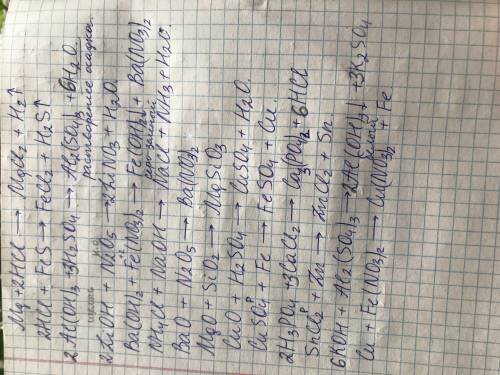 Mg + 2HCl → MgCl2 + H2↑
2HCl + FeS → FeCl2 + H2S↑
2Al(OH)3 + 3H2SO4 → Al2(SO4)3 + 6H2O
растворение осадка
2LiOH + N2O5 → 2LiNO3 + H2O
Ba(OH)2 + Fe(NO3)2 → Fe(OH)2↓ + Ba(NO3)2
серо-зеленый
NH4Cl + NaOH → NaCl + NH3 + H2O
BaO + N2O5 → Ba(NO3)2
MgO + SiO2 → MgSiO3
CuO + H2SO4 → CuSO4 + H2O
CuSO4 + Fe → FeSO4 + Cu
2H3PO4 + 3CaCl2 → Ca3(PO4)2 + 6HCl
SnCl2 + Zn → ZnCl2 + Sn
6KOH + Al2(SO4)3 → 2Al(OH)3↓ + 3K2SO4
белый
Cu + Fe(NO3)2 → Cu(NO3)2 + Fe